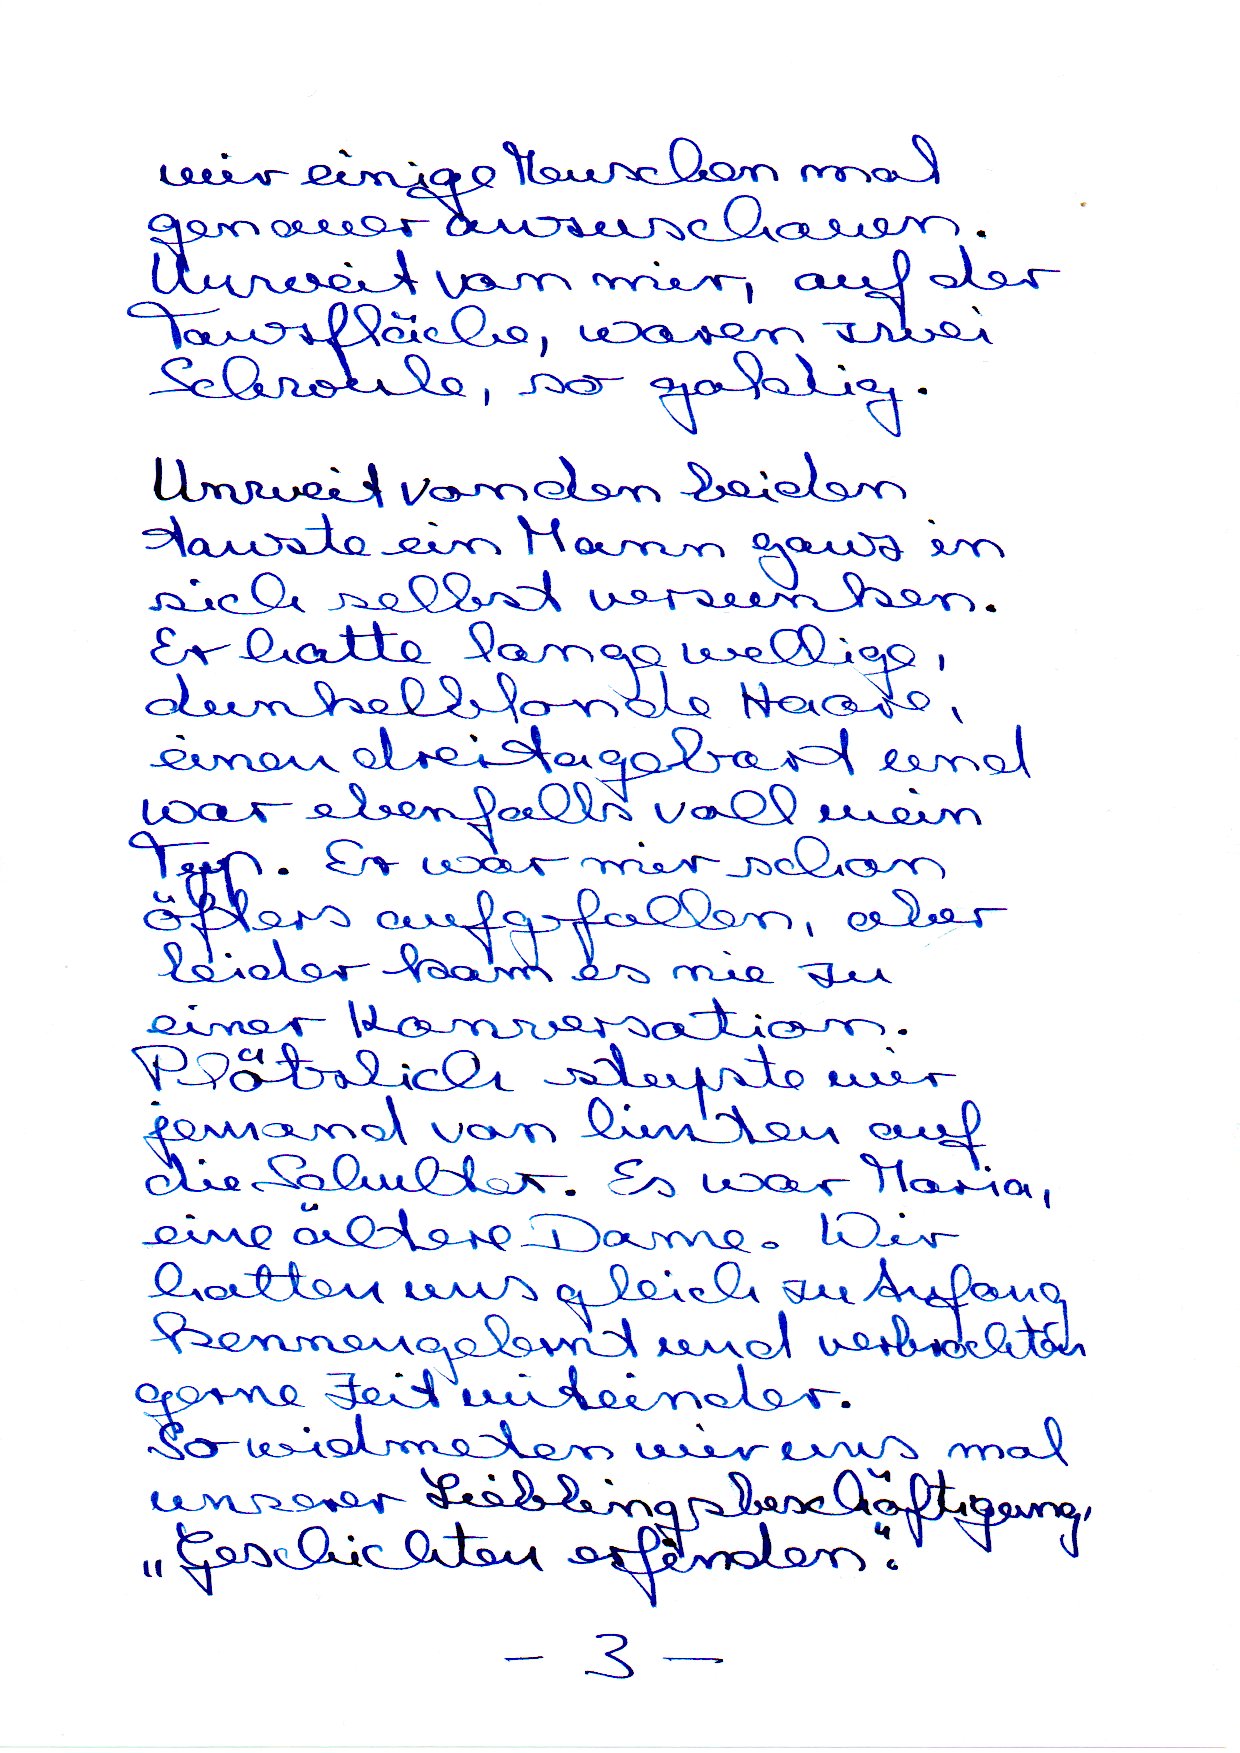 mir einige Menschen mal
genauer anzuschauen.
Unweit von mir, auf der
Tanzfläche, waren zwei
Schwule, so gaktig.
Unweit von den beiden
tanzte ein Mann ganz in
sich selbst versunken.
Er hatte lange wellige,
dunkelblonde Haare,
einen dreitagebart und
war ebenfalls voll mein
Typ. Er war mir schon
öfters aufgefallen, aber
leider kam es nie zu
einer Konversation.
Plötzlich stupste mir
jemand von hinten auf
die Schulter. Es war Maria,
eine ältere Dame. Wir
hatten uns gleich zu Anfang
kennengelernt und verbrachten
gerne Zeit miteinder.
So widmeten wir uns mal
unserer Lieblingsbeschäftigung,
„Geschichten erfinden“.
- 3 -